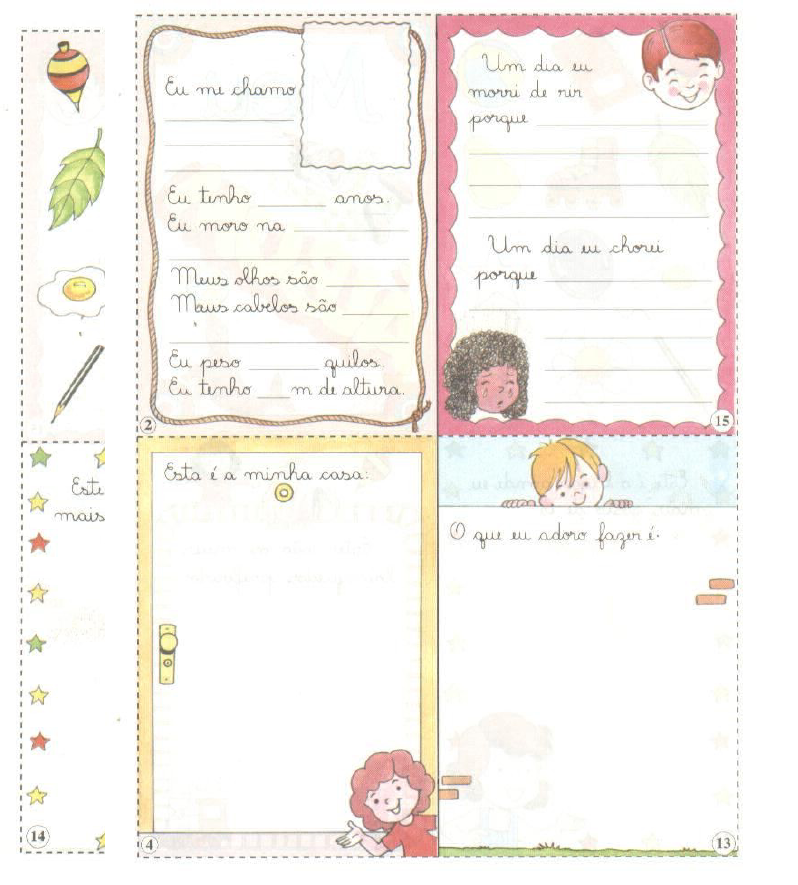 Eu me chamo
Eu tenho ______ anos.
Eu moro na
Meus olhos são
Meus cabelos são
Eu peso ______ quilos.
Eu tenho ___ m de altura.
2
Um dia eu
morri de rir
porque
Um dia eu chorei
porque
15
Este
mais
14
Esta é a minha casa:
4
O que eu adoro fazer é:
13